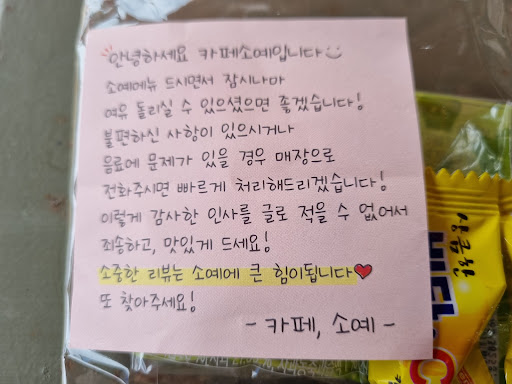 안녕하세요 카페소예입니다
소예메뉴 드시면서 잠시나마
여유 돌리실 수 있으셨으면 좋겠습니다!
불편하신 사항이 있으시거나
음료에 문제가 있을 경우 매장으로
전화주시면 빠르게 처리해드리겠습니다!
이렇게 감사한 인사를 글로 적을 수 없어서
죄송하고, 맛있게 드세요!
소중한 리뷰는 소예에 큰 힘이됩니다❤
또 찾아주세요!
- 카페, 소예 -